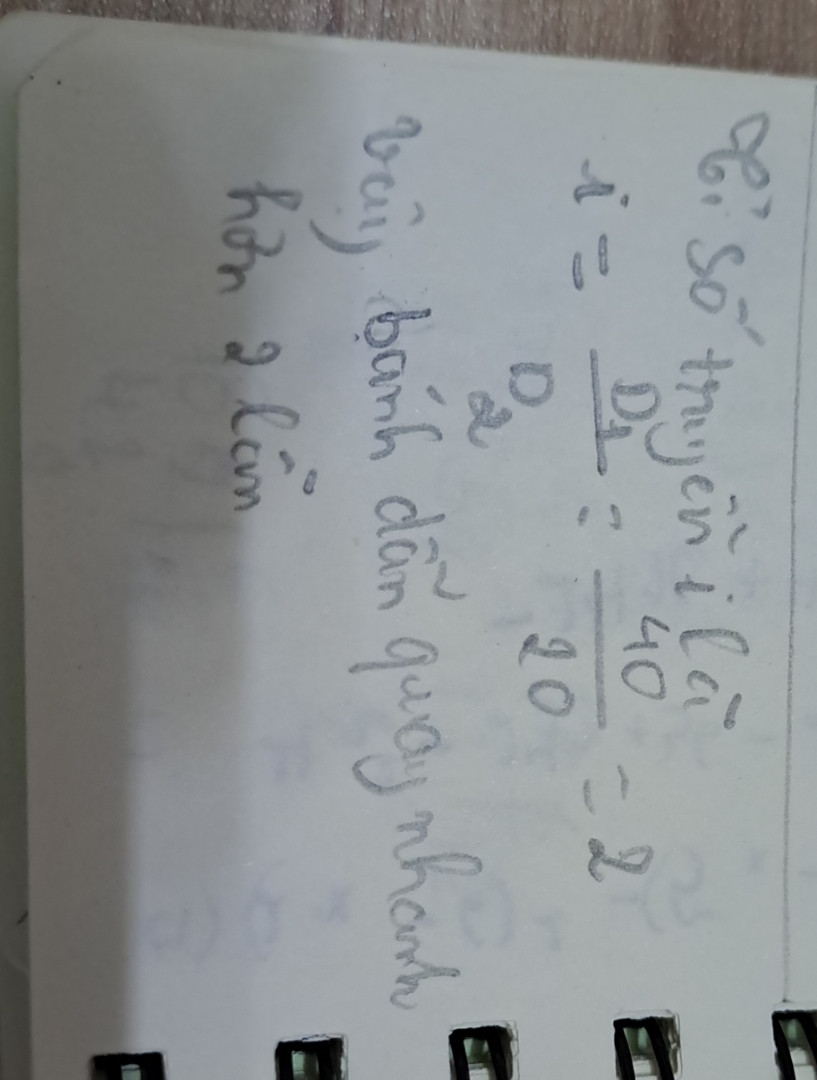 Tỉ số truyền i là
i = D1/D2 = 40/20 = 2
vậy bánh dẫn quay nhanh
hơn 2 lần